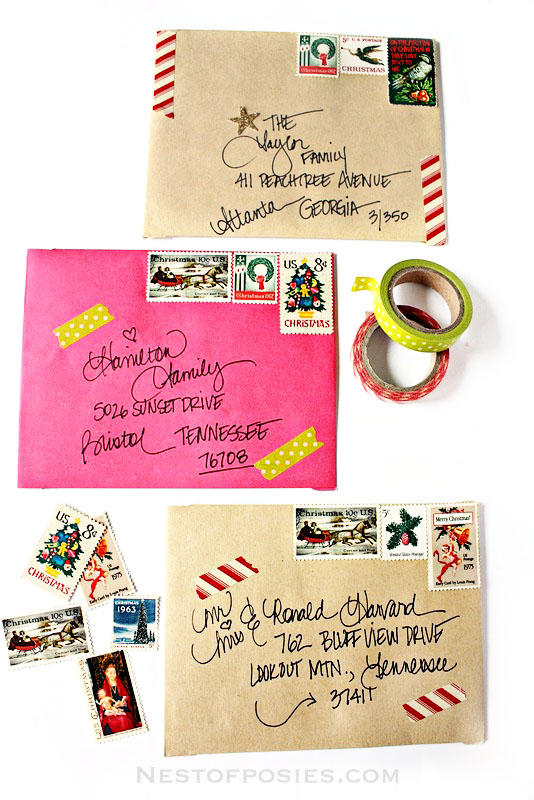 5c U.S. POSTAGE
Christmas 1962
CHRISTMAS
THE
Saylor
FAMILY
411 PEACHTREE AVENUE
Atlanta GEORGIA 31350
Christmas 10c U.S.
Christmas 1962
US 8¢
CHRISTMAS
Hamilton
Family
5026 SUNSET DRIVE
Bristol TENNESSEE
76708
US 8¢
CHRISTMAS
1975
Christmas 10c U.S.
CHRISTMAS
1963
US CHRISTMAS
Christmas 10c U.S.
5c
Merry Christmas!
1975
mr &
mrs Ronald Harvard
762 BLUFF VIEW DRIVE
LOOKOUT MTN., Tennessee
37417
NESTOFPOSIES.COM